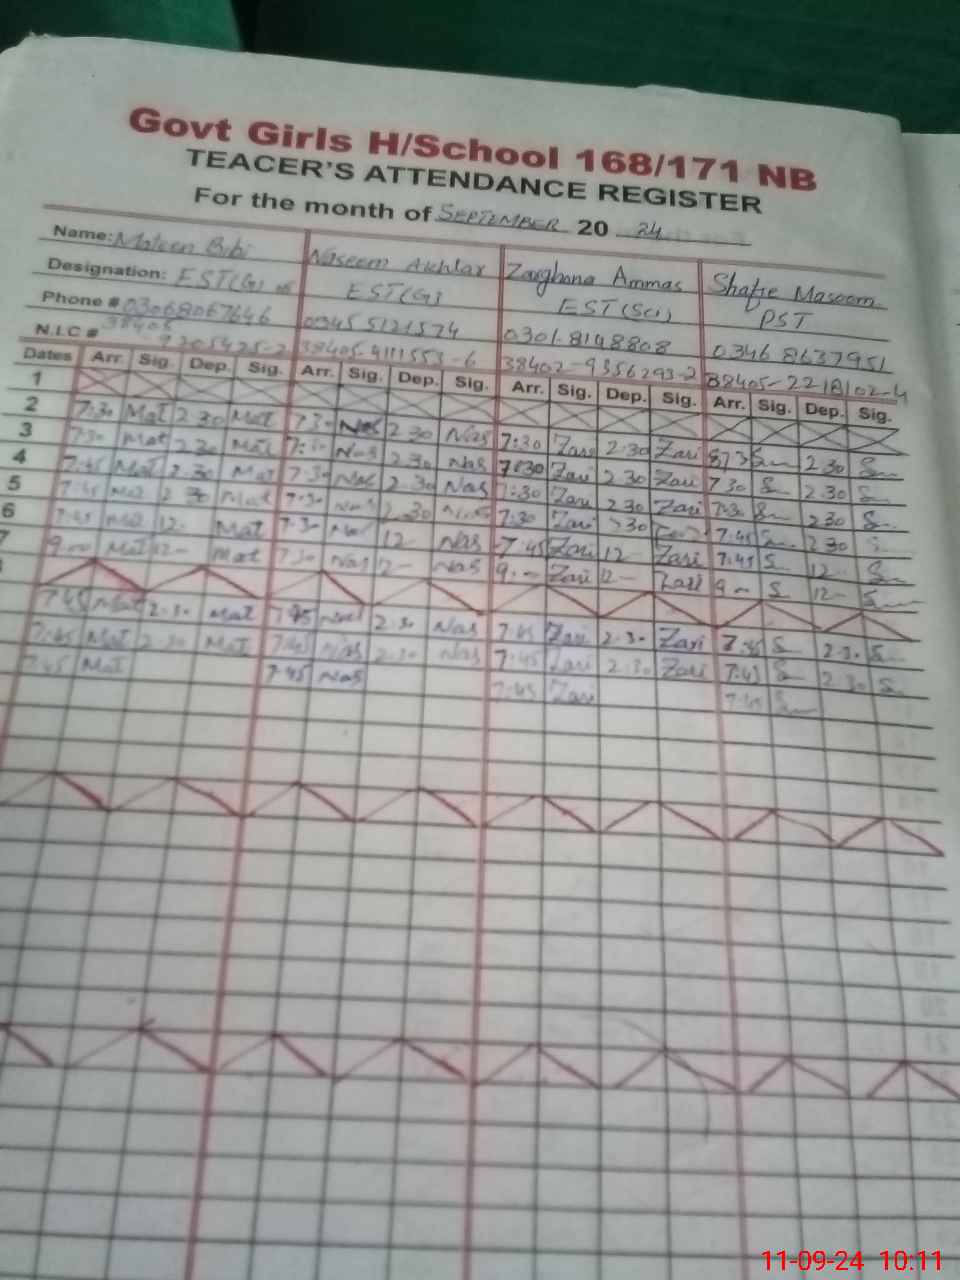 Govt Girls H/School 168/171 NB
TEACER'S ATTENDANCE REGISTER
For the month of SEPTEMBER 20 24
Name: Mateen Bibi Naseem Akhtar Zarghona Ammas Shafie Masoom
Designation: EST(G) EST(G) EST(Sci) PST
Phone # 03068067646 0345 5121574 0301-8198808 0346 8637951
N.I.C # 38405
38405-4111553-6 38402-9356293-2
Dates Arr. Sig. Dep. Sig. Arr. Sig. Dep. Sig. Arr. Sig. Dep. Sig. Arr. Sig. Dep. Sig.
1
2 7:30 Mat 2 30 Mat 7 30 Nas 2 30 Nas 7:30 Zari 2:30 Zari 2 30
3 7:30 Mat 2 30 Mat Nas 2 30 Nas 7:30 Zari 2 30 Zari 7 30 2.30
4 7:45 Mat 2.30 Mat 7:30 Nas 2 30 Nas 7:30 Zari 2 30 Zari 7:30 2 30
5 7:45 Mat 2 30 Mat 7:30 Nas 2 30 Nas 7:30 Zari 7:45 2 30
6 7:45 Mat 12- Mat 7:30 Nas 12- Nas 7 45 Zari 12- Zari 7:45 12-
7 9.00 Mat 12- Mat 7:30 Nas 12- Nas 9.- Zari 12- Zari 9- 12-
7 45 Mat 2:30 Mat 7 45 Nas 2:30 Nas 7:45 Zari 2:30 Zari 7:45 2:30
7:45 Mat 2:30 Mat 7:45 Nas 2:30 Nas 7:45 Zari 2:30 Zari 7:45 2:30
7:45 Mat 7:45 Nas 7:45 Zari 7:45
11-09-24 10:11